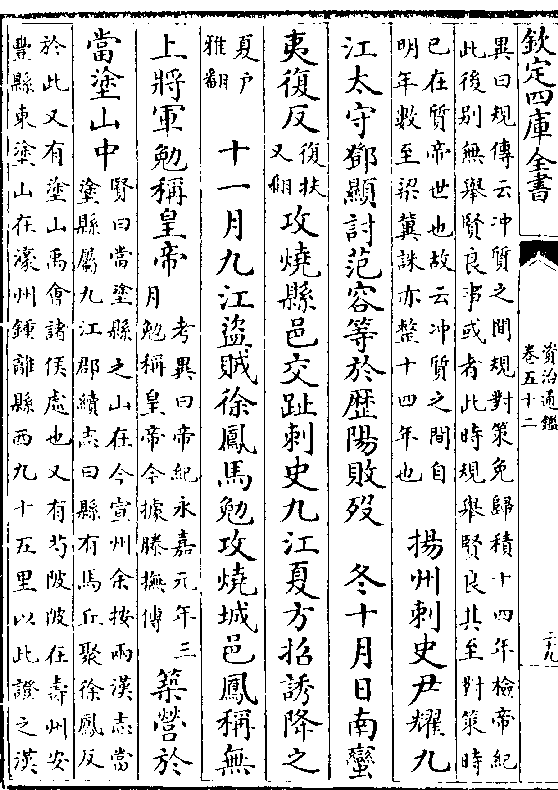 欽定四庫全書
資治通鑑
卷五十二
三十九
異曰規傳云冲質之間規對策免歸積十四年檢帝紀
此後别無舉賢良事或者此時規舉賢良其至對策時
已在質帝世也故云冲質之間自
明年數至梁冀誅亦整十四年也
揚州刺史尹耀九
江太守鄧顯討范容等於歴陽敗殁　冬十月日南蠻
夷復反
復扶
又翻
攻燒縣邑交趾刺史九江夏方招誘降之
夏戸
雅翻
十一月九江盜賊徐鳳馬勉攻燒城邑鳳稱無
上將軍勉稱皇帝
考異曰帝紀永嘉元年三
月勉稱皇帝今據滕撫傳
築營於
當塗山中
賢曰當塗縣之山在今宣州余按兩漢志當
塗縣屬九江郡續志曰縣有馬丘聚徐鳳反
於此又有塗山禹會諸侯處也又有芍陂陂在壽州安
豐縣東塗山在濠州鍾離縣西九十五里以此證之漢